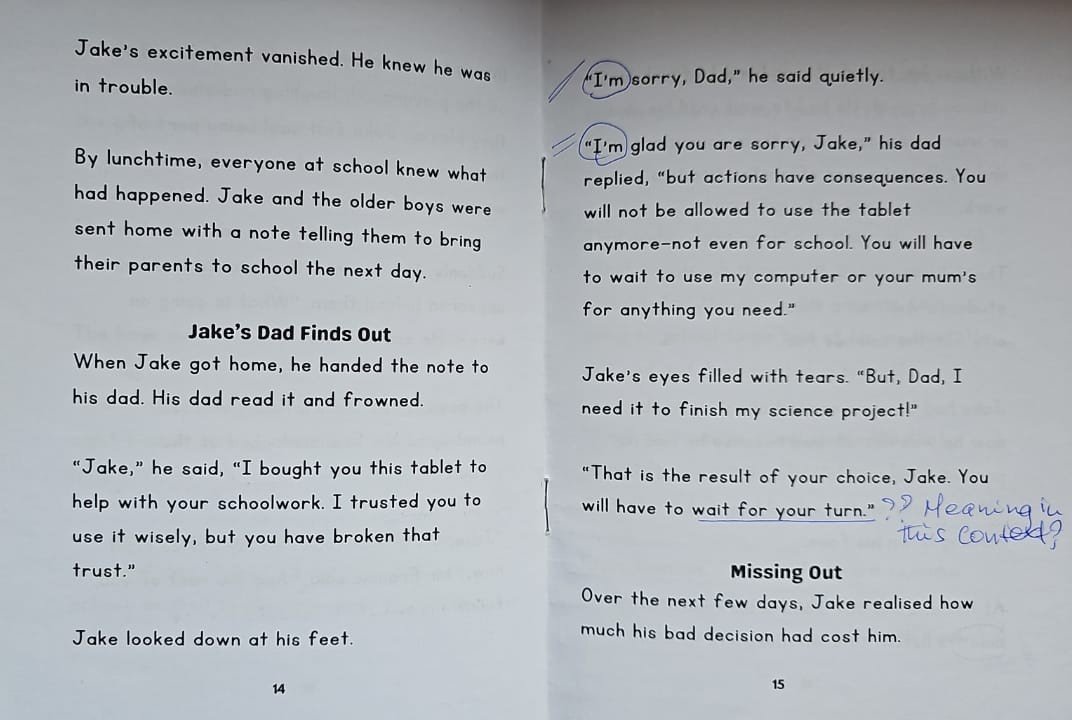 Jake's excitement vanished. He knew he was
in trouble.
By lunchtime, everyone at school knew what
had happened. Jake and the older boys were
sent home with a note telling them to bring
their parents to school the next day.
Jake's Dad Finds Out
When Jake got home, he handed the note to
his dad. His dad read it and frowned.
“Jake,” he said, “I bought you this tablet to
help with your schoolwork. I trusted you to
use it wisely, but you have broken that
trust.”
Jake looked down at his feet.
14
“I'm sorry, Dad,” he said quietly.
“I'm glad you are sorry, Jake,” his dad
replied, “but actions have consequences. You
will not be allowed to use the tablet
anymore—not even for school. You will have
to wait to use my computer or your mum's
for anything you need.”
Jake's eyes filled with tears. “But, Dad, I
need it to finish my science project!”
“That is the result of your choice, Jake. You
will have to wait for your turn.” ?? Meaning in
this context?
Missing Out
Over the next few days, Jake realised how
much his bad decision had cost him.
15